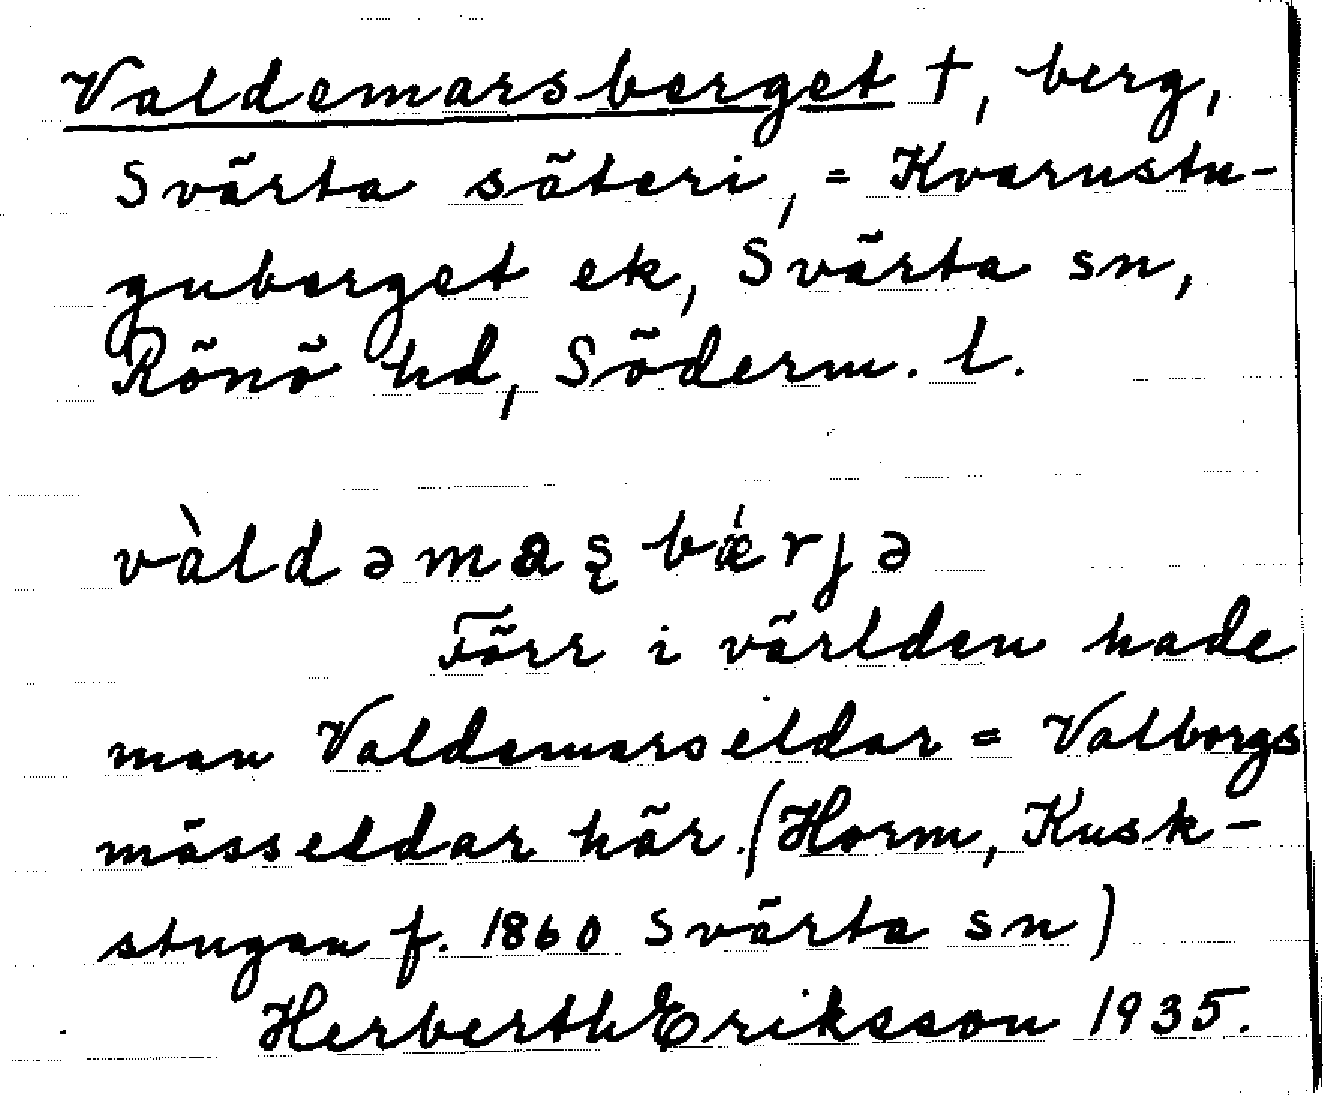 Valdemarsberget †, berg,
Svärta säteri, = Kvarnstu-
guberget ek, Svärta sn,
Rönö hd, Söderm. l.
vàldəmaʂbǽrjə
Förr i världen hade
man Valdemarseldar = Valborgs
mässeldar här. (Horm, Kusk-
stugan f. 1860 Svärta sn)
Herberth Eriksson 1935.